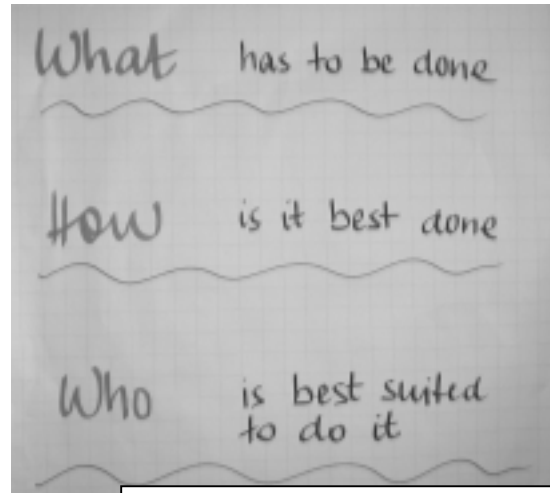 What has to be done
How is it best done
Who is best suited
to do it